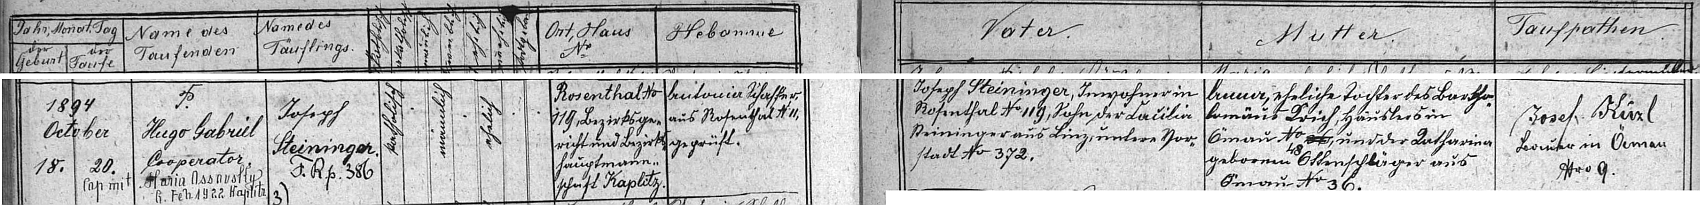 Jahr, Monat, Tag
der Geburt
der Taufe
Name des Taufenden
Name des Täuflings.
katholisch
männlich
weiblich
ehelich
unehelich
Ort, Haus No
Hebamme
Vater.
Mutter
Taufpathen
1894
October
18. 20.
P
Hugo Gabriel
Cooperator.
Cop. mit
Maria
6. Feb 1922 Kaplitz
Joseph
Steininger.
F. R. p. 386
3)
katholisch
männlich
ehelich
Rosenthal No
119, Bezirksge-
richt und Bezirks-
hauptmann-
schaft Kaplitz.
Antonia Schaffer
aus Rosenthal No 11,
geprüft.
Joseph Steininger, Inwohner in
Rosenthal No 119, Sohn der Cäcilia
Steininger aus Linz, untere Vor-
stadt No 372.
Anna, eheliche Tochter des Bartho-
lomäus, Häuslers in
Ömau No 48, und der Katharina
geborenen Ottenschläger aus
Ömau No 36.
Josef
Bauer in Ömau
Nro 9.